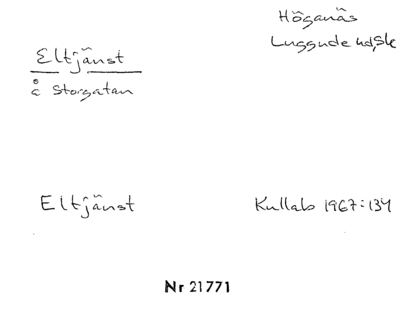 Höganäs
Luggude hd, Sk
Eltjänst
å Storgatan
Eltjänst
Kullab 1967:134
Nr 21771